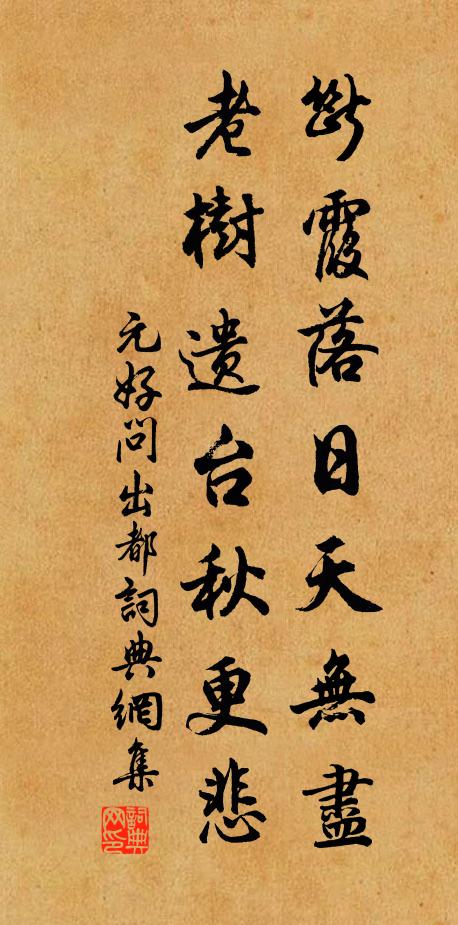 斷霞落日天無盡
老樹遺台秋更悲
元好問出都詞典網集
詞典网印